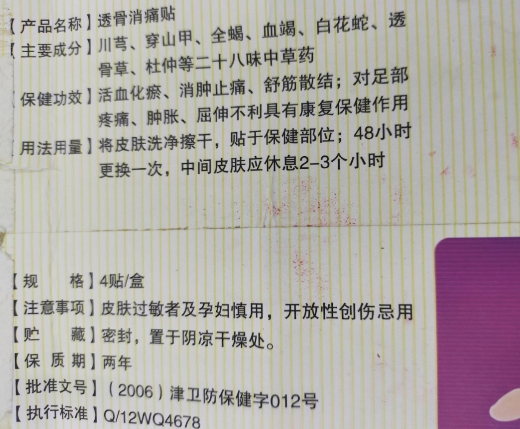 【产品名称】透骨消痛贴
【主要成分】川芎、穿山甲、全蝎、血竭、白花蛇、透
骨草、杜仲等二十八味中草药
【保健功效】活血化瘀、消肿止痛、舒筋散结；对足部
疼痛、肿胀、屈伸不利具有康复保健作用
【用法用量】将皮肤洗净擦干，贴于保健部位；48小时
更换一次，中间皮肤应休息2-3个小时
【规　　格】4贴/盒
【注意事项】皮肤过敏者及孕妇慎用，开放性创伤忌用
【贮　　藏】密封，置于阴凉干燥处。
【保 质 期】两年
【批准文号】（2006）津卫防保健字012号
【执行标准】Q/12WQ4678